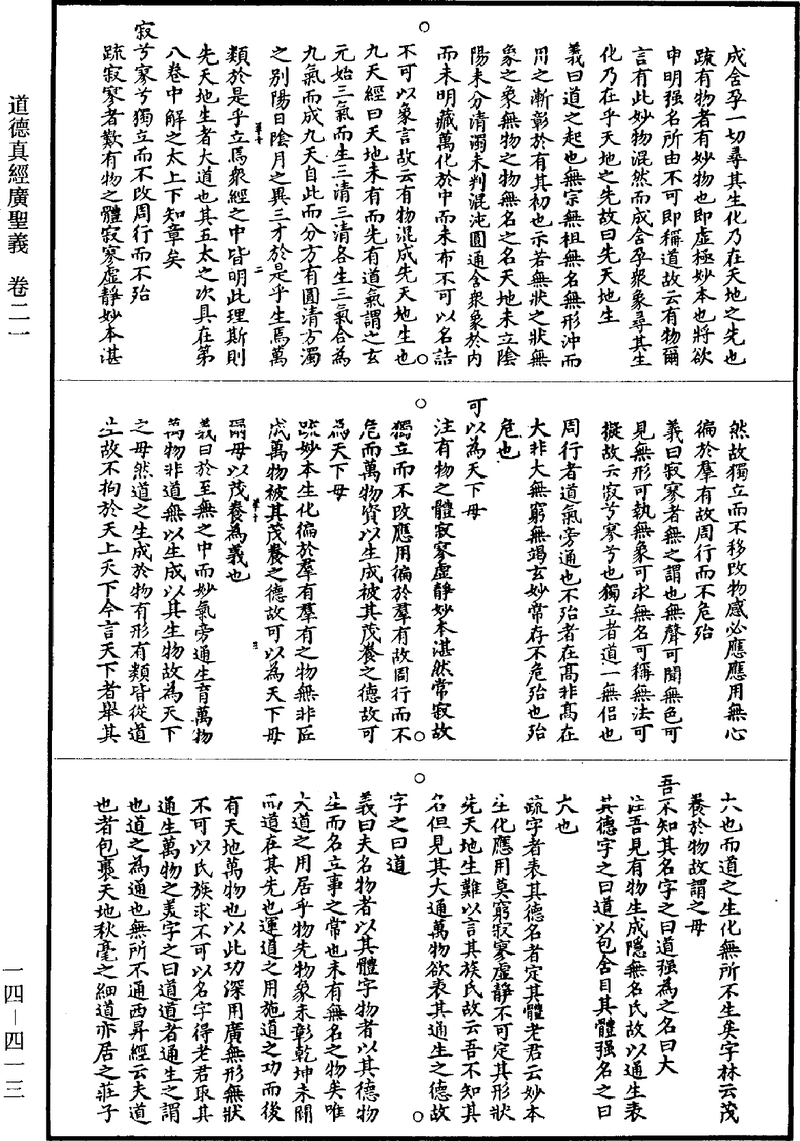 道德真經廣聖義　卷二一
成含孕一切尋其生化乃在天地之先也
疏有物者有妙物也即虛極妙本也將欲
申明强名所由不可即稱道故云有物爾
言有此妙物混然而成含孕衆象尋其生
化乃在乎天地之先故曰先天地生
義曰道之起也無宗無祖無名無形沖而
用之漸彰於有其初也示若無狀之狀無
象之象無物之物無名之名天地未立陰
陽未分清濁未判混沌圓通含衆象於内
而未明藏萬化於中而未布不可以名詰
不可以象言故云有物混成先天地生也
九天經曰天地未有而先有道氣謂之玄
元始三氣而生三清三清各生三氣合為
九氣而成九天自此而分方有圓清方濁
之别陽日陰月之異三才於是乎生焉萬
類於是乎立焉衆經之中皆明此理斯則
先天地生者大道也其五太之次具在第
八卷中解之太上下知章矣
寂兮寥兮獨立而不改周行而不殆
疏寂寥者歎有物之體寂寥虛靜妙本湛
然故獨立而不移改物感必應應用無心
徧於羣有故周行而不危殆
義曰寂寥者無之謂也無聲可聞無色可
見無形可執無象可求無名可稱無法可
擬故云寂兮寥兮也獨立者道一無侶也
周行者道氣旁通也不殆者在髙非髙在
大非大無窮無竭玄妙常存不危殆也殆
危也
可以為天下母
注有物之體寂寥虛靜妙本湛然常寂故
獨立而不改應用徧於羣有故周行而不
危而萬物資以生成被其茂養之德故可
為天下母
疏妙本生化徧於羣有羣有之物無非匠
成萬物被其茂養之德故可以為天下母
爾母以茂養為義也
義曰於至無之中而妙氣旁通生育萬物
萬物非道無以生成以其生物故為天下
之母然道之生成於物有形有類皆從道
生故不拘於天上天下今言天下者舉其
大也而道之生化無所不生矣字林云茂
養於物故謂之母
吾不知其名字之曰道强為之名曰大
注吾見有物生成隱無名氏故以通生表
其德字之曰道以包含目其體强名之曰
大也
疏字者表其德名者定其體老君云妙本
生化應用莫窮寂寥虛靜不可定其形狀
先天地生難以言其族氏故云吾不知其
名但見其大通萬物欲表其通生之德故
字之曰道
義曰夫名物者以其體字物者以其德物
生而名立事之常也未有無名之物矣唯
大道之用居乎物先物象未彰乾坤未闢
而道在其先也運道之用施道之功而後
有天地萬物也以此功深用廣無形無狀
不可以氏族求不可以名字得老君取其
通生萬物之美字之曰道道者通生之謂
也道之為通也無所不通西昇經云夫道
也者包裹天地秋毫之細道亦居之莊子
一四—四一三